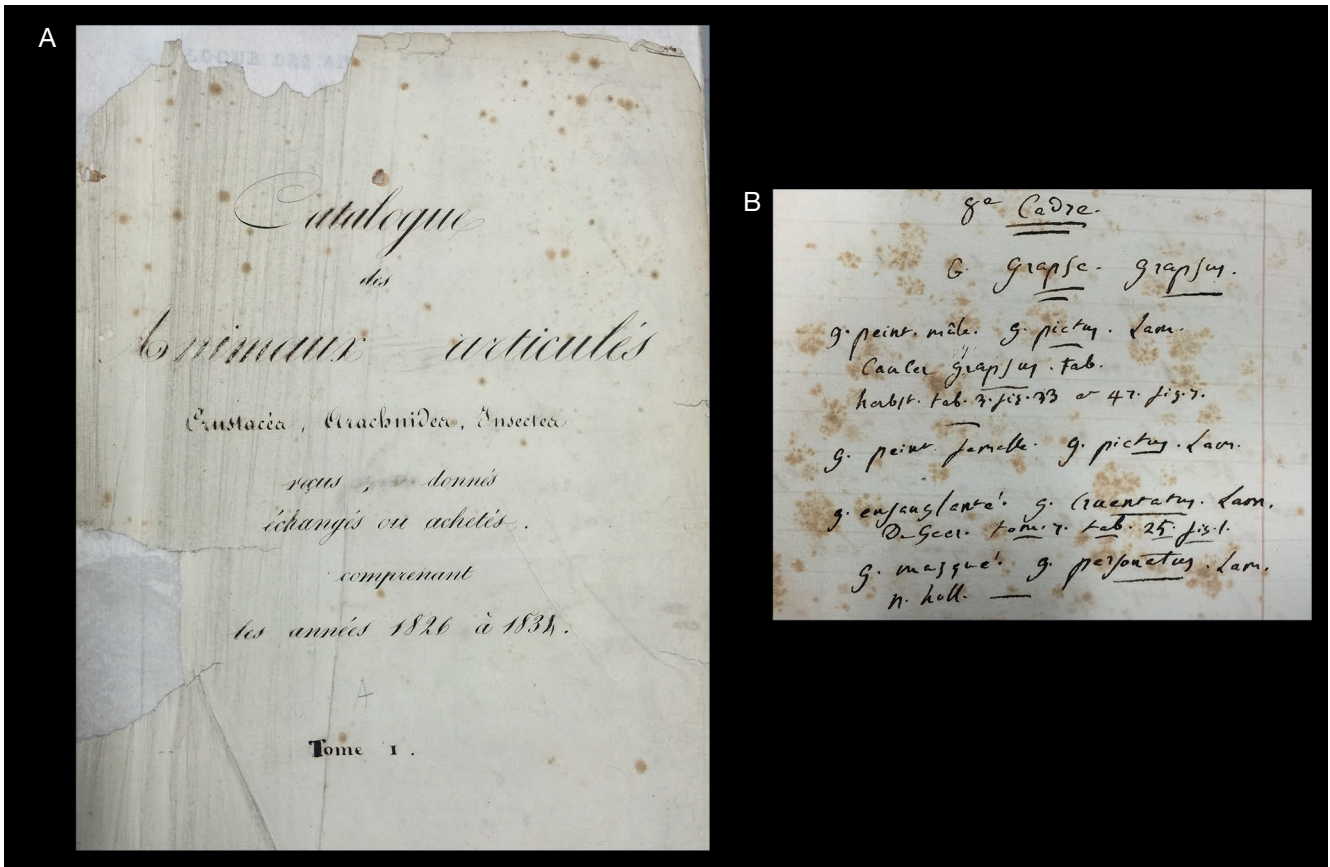 A
Catalogue
des
Animaux articulés
Crustacea, Arachnidea, Insectea
reçus, donnés
échangés ou achetés.
comprenant
les années 1826 à 1834.
A
Tome 1.
B
8e Cadre.
G. Grapse. Grapsus.
g. peint. mâle. g. pictus. Lam.
Cancer grapsus. Fab.
herbst. tab. 3. fig. 33 et 47. fig. 7.
g. peint femelle. g. pictus. Lam.
g. ensanglanté. g. Cruentatus. Lam.
DeGeer. tom. 7. tab. 25. fig. 1.
g. masqué. g. personatus. Lam.
n. holl.